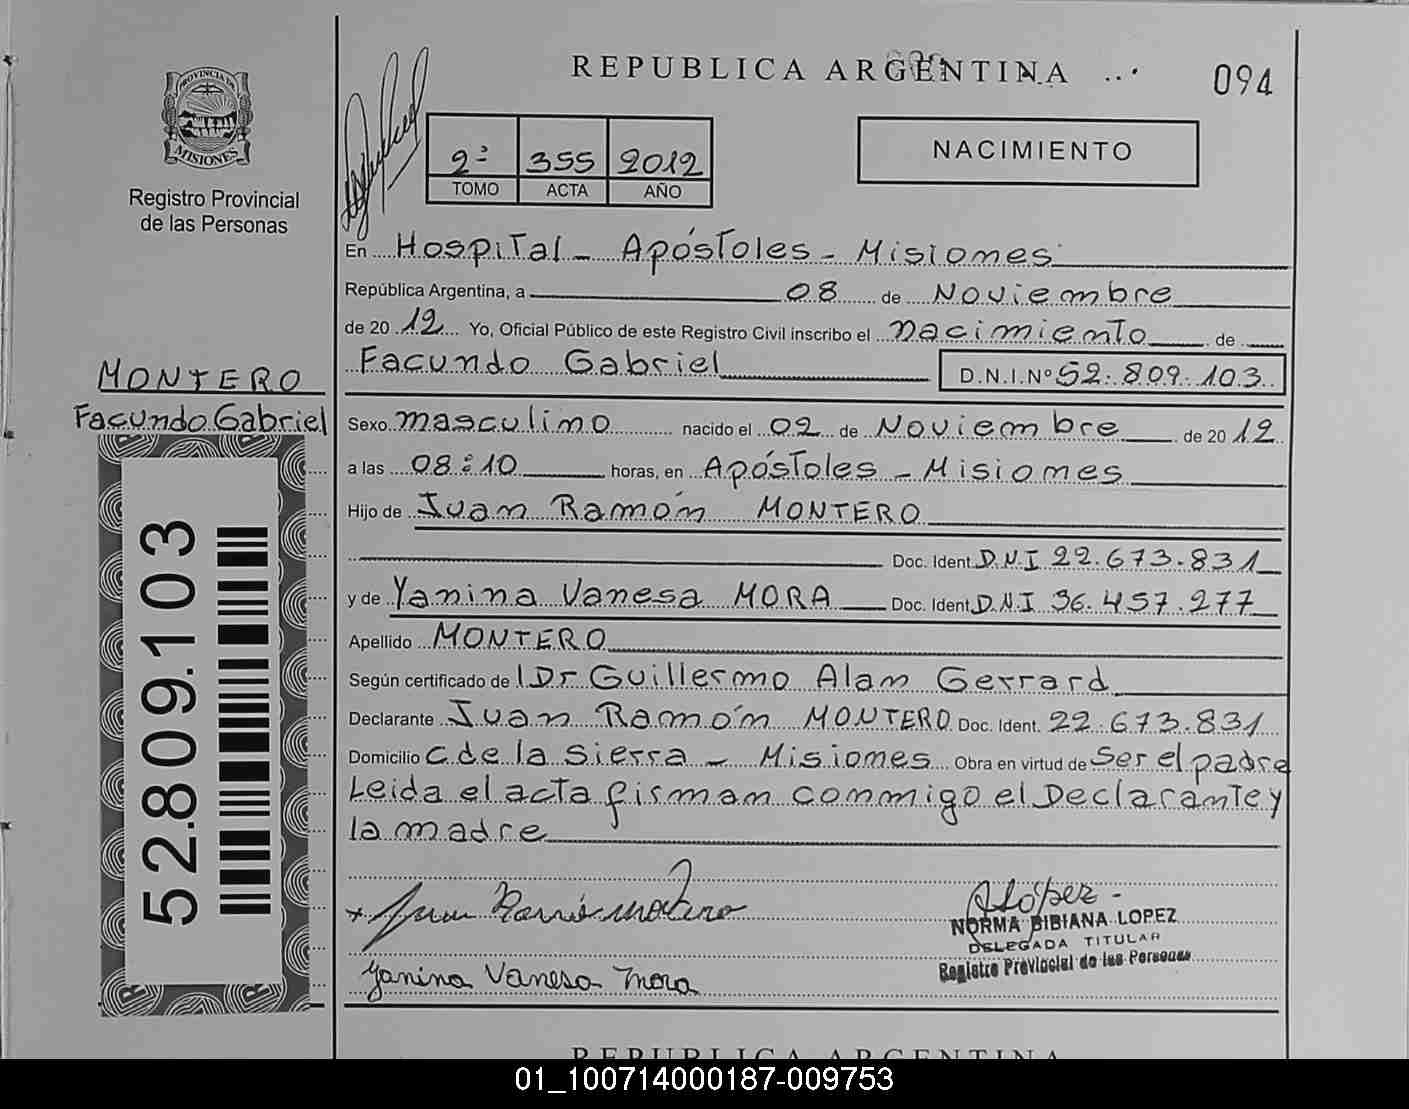 REPUBLICA ARGENTINA
094
PROVINCIA DE
MISIONES
Registro Provincial
de las Personas
2º 355 2012
TOMO ACTA AÑO
NACIMIENTO
En Hospital - Apóstoles - Misiones
República Argentina, a 08 de Noviembre
de 2012 Yo, Oficial Público de este Registro Civil inscribo el nacimiento de
Facundo Gabriel D.N.I.Nº 52.809.103
MONTERO
Facundo Gabriel
Sexo masculino nacido el 02 de Noviembre de 2012
a las 08:10 horas, en Apóstoles - Misiones
Hijo de Juan Ramón MONTERO
Doc. Ident. D.N.I 22.673.831
y de Yanina Vanesa MORA Doc. Ident. D.N.I 36.457.277
Apellido MONTERO
Según certificado de Dr Guillermo Alan Gerrard
Declarante Juan Ramón MONTERO Doc. Ident. 22.673.831
Domicilio C. de la Sierra - Misiones Obra en virtud de Ser el padre
Leida el acta firman conmigo el Declarante y
la madre
52.809.103
Juan Ramón Montero
ALópez -
NORMA BIBIANA LOPEZ
DELEGADA TITULAR
Registro Provincial de las Personas
Yanina Vanesa Mora
REPUBLICA ARGENTINA
01_100714000187-009753